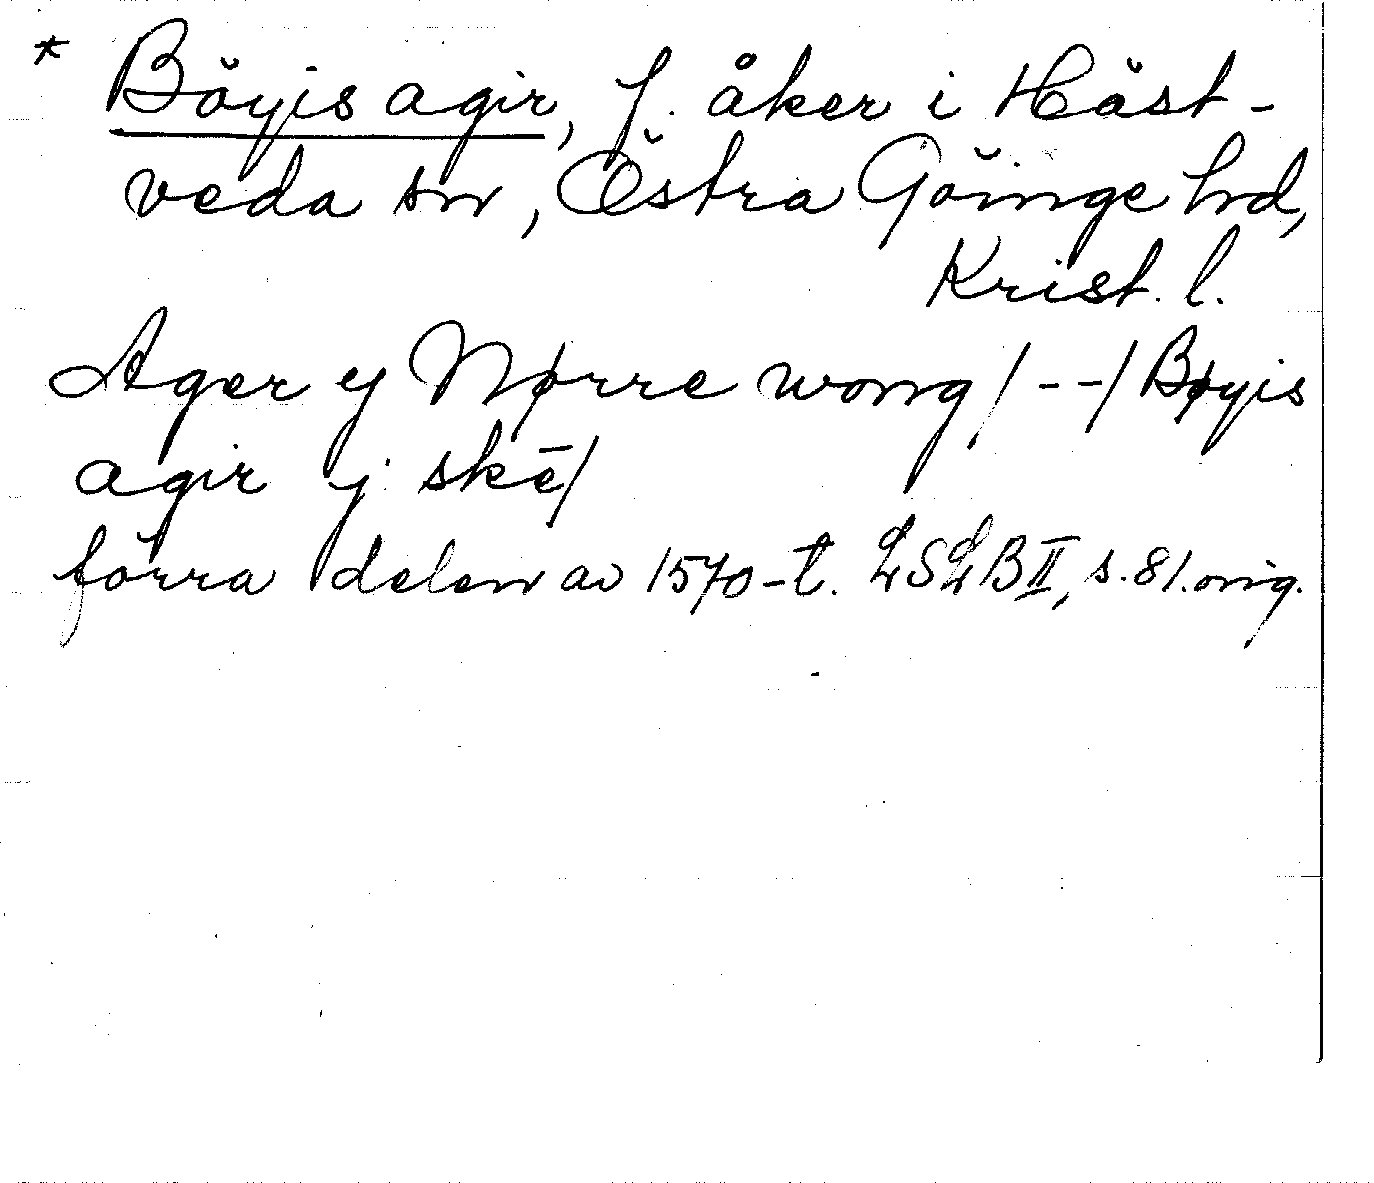 * Böyis agir, f. åker i Häst-
veda sn, Östra Göinge hrd,
Krist. l.
Ager y Nørre wong / - - / Bøyis
agir j skē /
förra delen av 1570-t. LSLB II, s. 81. orig.